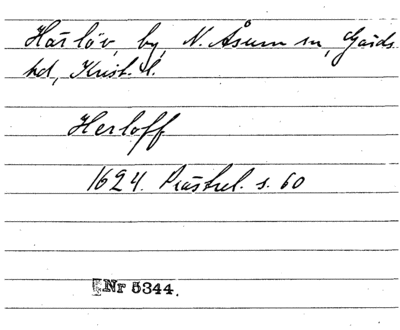 Härlöv, by, N. Åsum sn, Gärds
hd, Krist. l.
Herloff
1624. Prästrel. s. 60
Nr 5344.